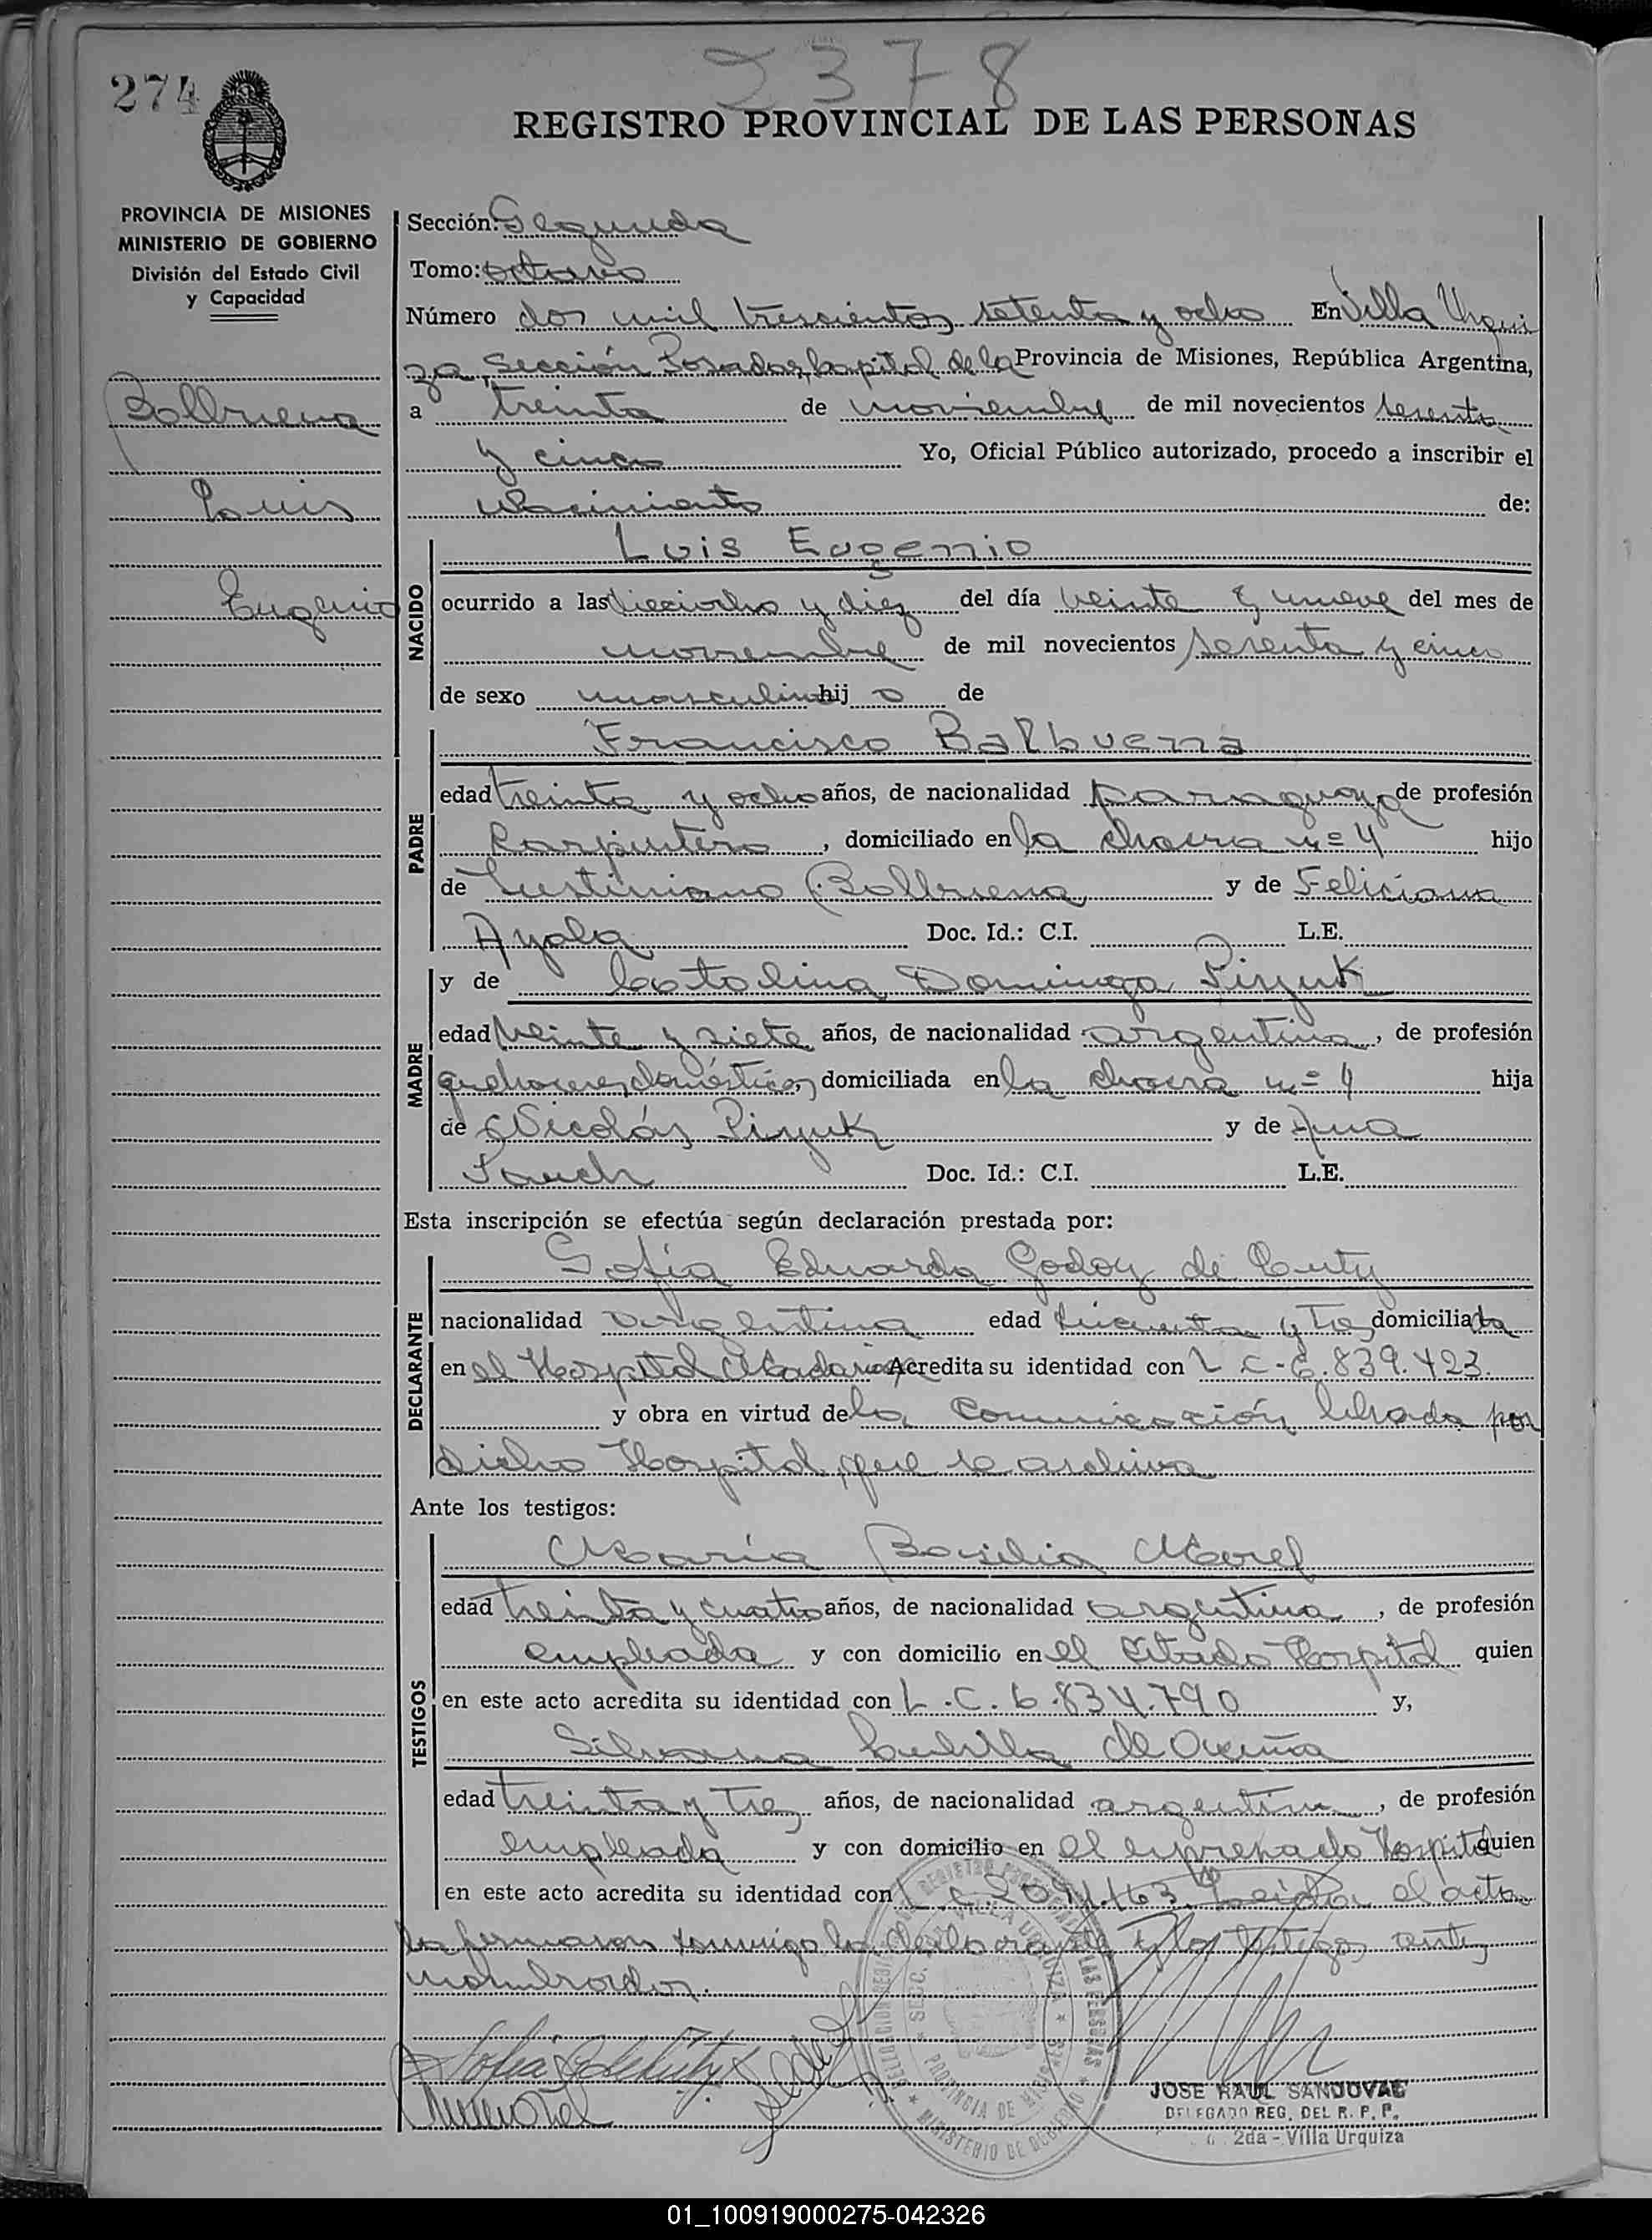 2378
274
REGISTRO PROVINCIAL DE LAS PERSONAS
PROVINCIA DE MISIONES
MINISTERIO DE GOBIERNO
División del Estado Civil
y Capacidad
Balbuena
Luis
Eugenio
Sección: Segunda
Tomo: octavo
Número dos mil trescientos setenta y ocho En Villa Urqui
za, Sección Posadas, Capital de la Provincia de Misiones, República Argentina,
a treinta de noviembre de mil novecientos sesenta
y cinco Yo, Oficial Público autorizado, procedo a inscribir el
Nacimiento de:
NACIDO
Luis Eugenio
ocurrido a las dieciocho y diez del día veinte y nueve del mes de
noviembre de mil novecientos sesenta y cinco
de sexo masculino hijo de
PADRE
Francisco Balbuena
edad treinta y ocho años, de nacionalidad paraguaya de profesión
Carpintero, domiciliado en la chacra nº 4 hijo
de Justiniano Balbuena y de Feliciana
Ayala Doc. Id.: C.I. L.E.
MADRE
y de Catalina Dominga Piryuk
edad veinte y siete años, de nacionalidad argentina, de profesión
quehaceres domésticos domiciliada en la chacra nº 4 hija
de Nicolás Piryuk y de Ana
Doc. Id.: C.I. L.E.
Esta inscripción se efectúa según declaración prestada por:
DECLARANTE
Sofía Eduarda Godoy de
nacionalidad argentina edad cincuenta y tres domiciliada
en el Hospital Madariaga Acredita su identidad con L C-6.839.423.
y obra en virtud de la Comunicación librada por
dicho Hospital, que se archiva
Ante los testigos:
TESTIGOS
María Basilia Morel
edad treinta y cuatro años, de nacionalidad argentina, de profesión
empleada y con domicilio en el citado Hospital quien
en este acto acredita su identidad con L.C. 6.834.790 y,
Silvana de Acuña
edad treinta y tres años, de nacionalidad argentina, de profesión
empleada y con domicilio en el expresado Hospital quien
en este acto acredita su identidad con Leída el acta
la firmaron conmigo la declarante y los testigos antes
nombrados.
JOSE RAUL SANDOVAL
DELEGADO REG. DEL R. P. P.
2da - Villa Urquiza
01_100919000275-042326